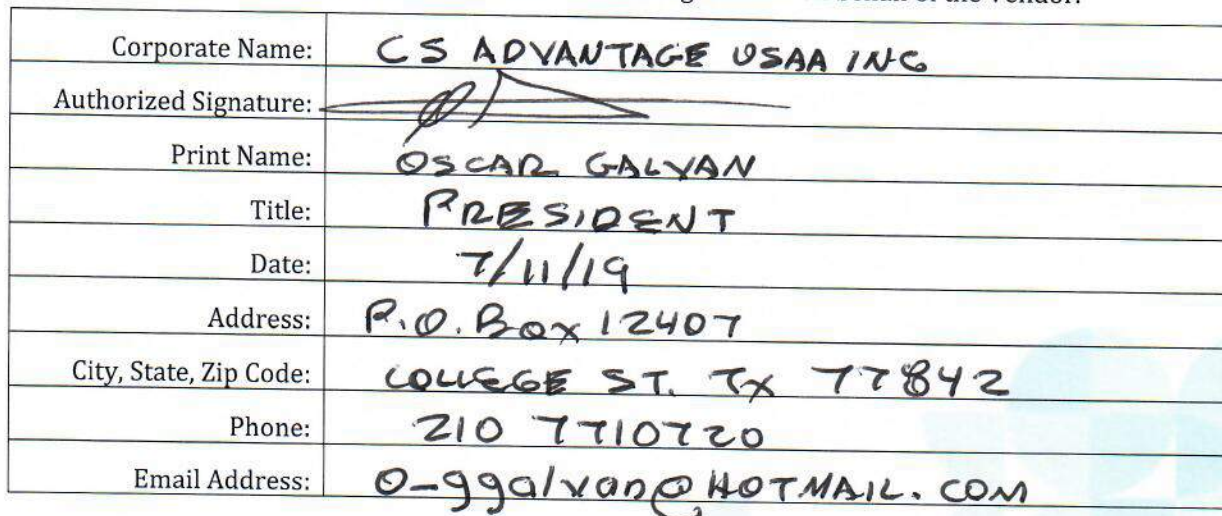 of the Vendor.
Corporate Name: CS ADVANTAGE USAA INC
Authorized Signature:
Print Name: OSCAR GALVAN
Title: PRESIDENT
Date: 7/11/19
Address: P.O. Box 12407
City, State, Zip Code: COLLEGE ST. TX 77842
Phone: 210 7710720
Email Address: O-ggalvan@HOTMAIL.COM